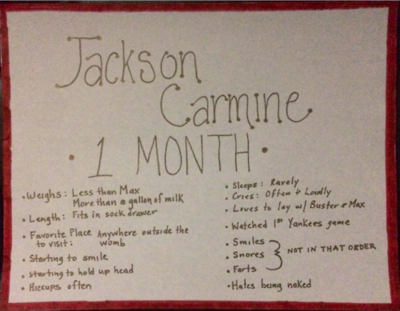 Jackson
Carmine
• 1 MONTH •
• Weighs: Less than Max
More than a gallon of milk
• Length: Fits in sock drawer
• Favorite Place Anywhere outside the
to visit: womb
• Starting to smile
• starting to hold up head
• Hiccups often
• Sleeps: Rarely
• Cries: Often + Loudly
• Loves to lay w/ Buster + Max
• Watched 1st Yankees game
• Smiles
• Snores } NOT IN THAT ORDER
• Farts
• Hates being naked